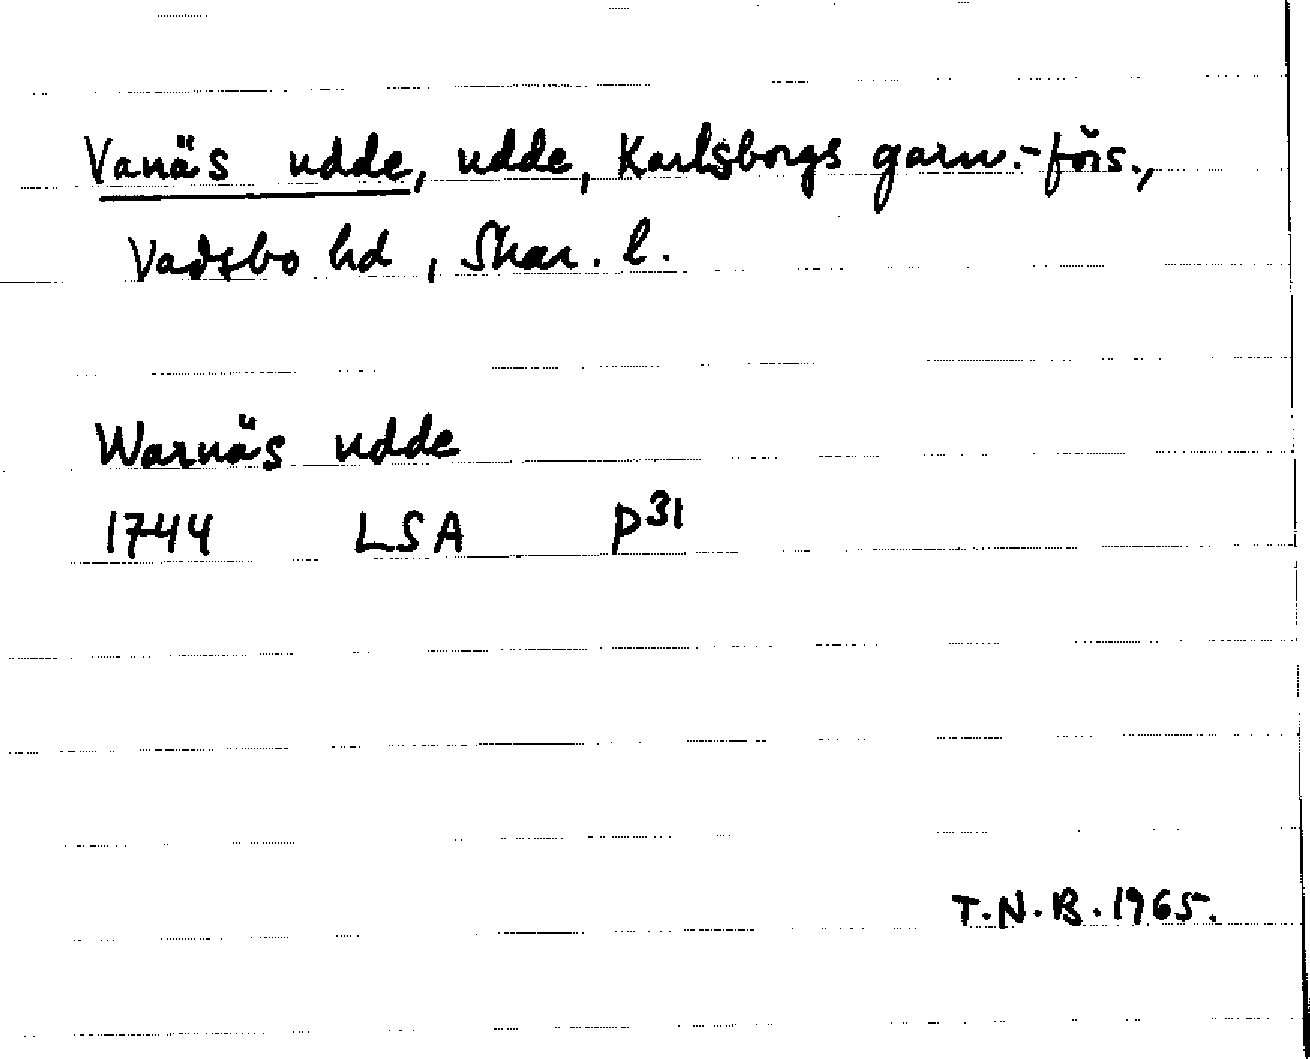 Vanäs udde, udde, Karlsborgs garn.-förs.,
Vadsbo hd, Skar. l.
Warnäs udde
1744 LSA P31
T.N.B. 1965.